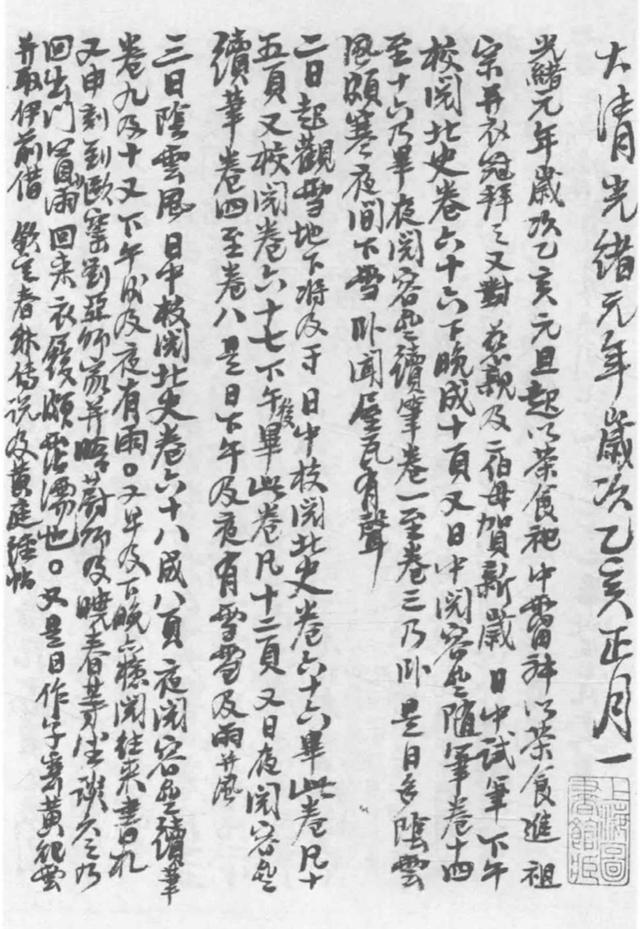 大清光緒元年歲次乙亥正月一
光緒元年歲次乙亥元旦起以茶食祀中霤神以茶食進祖
宗并衣冠拜之又對慈親及二伯母賀新歲日中試筆下午
校閱北史卷六十六下晚成十頁又日中閱容齋隨筆卷十四
至十六乃畢夜閱容齋續筆卷一至卷三乃臥是日多陰雲
風頗寒夜間下雪臥聞屋瓦有聲
二日起觀雪地下將及寸日中校閱北史卷六十六畢此卷凡十
五頁又校閱卷六十七下午後畢此卷凡十二頁又日夜閱容齋
續筆卷四至卷八是日下午及夜有雪雪及雨并風
三日陰雲風日中校閱北史卷六十八成八頁夜閱容齋續筆
卷九及十又下午後及夜有雨又早及下晚檢閱往來書札
又申刻到歐窯劉亞師家并晤蔚師及曉春等坐談久之乃
回出門冒雨回來衣履頗霑濡也又是日作字寄黃祀雲
并取伊前借欽定春秋傳說及黃庭經帖
上海圖書館藏